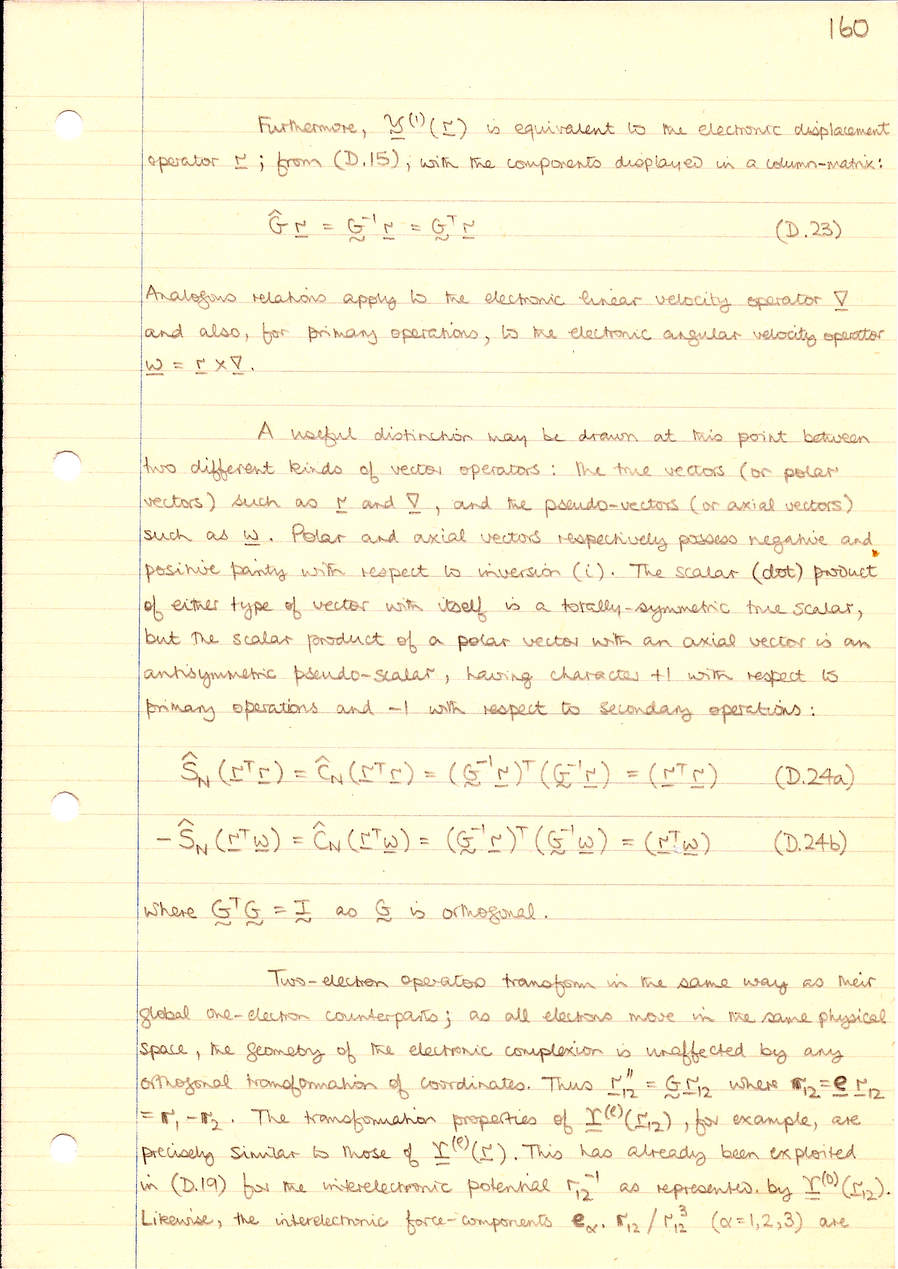 160
Furthermore, 𝒴⁽¹⁾(r) is equivalent to the electronic displacement
operator r ; from (D.15), with the components displayed in a column-matrix:
Ĝ r = G⁻¹ r = Gᵀ r (D.23)
Analogous relations apply to the electronic linear velocity operator ∇
and also, for primary operations, to the electronic angular velocity operator
ω = r × ∇.
A useful distinction may be drawn at this point between
two different kinds of vector operators : the true vectors (or polar
vectors) such as r and ∇, and the pseudo-vectors (or axial vectors)
such as ω. Polar and axial vectors respectively possess negative and
positive parity with respect to inversion (i). The scalar (dot) product
of either type of vector with itself is a totally-symmetric true scalar,
but the scalar product of a polar vector with an axial vector is an
antisymmetric pseudo-scalar, having character +1 with respect to
primary operations and -1 with respect to secondary operations :
Ŝ_N (rᵀr) = Ĉ_N (rᵀr) = (G⁻¹r)ᵀ(G⁻¹r) = (rᵀr) (D.24a)
- Ŝ_N (rᵀω) = Ĉ_N (rᵀω) = (G⁻¹r)ᵀ(G⁻¹ω) = (rᵀω) (D.24b)
where GᵀG = I as G is orthogonal.
Two-electron operators transform in the same way as their
global one-electron counterparts; as all electrons move in the same physical
space, the geometry of the electronic complexion is unaffected by any
orthogonal transformation of coordinates. Thus r₁₂″ = G r₁₂ where r₁₂ = e r₁₂
= r₁ - r₂. The transformation properties of Υ⁽ˡ⁾(r₁₂), for example, are
precisely similar to those of Υ⁽ˡ⁾(r). This has already been exploited
in (D.19) for the interelectronic potential r₁₂⁻¹ as represented by Υ⁽⁰⁾(r₁₂).
Likewise, the interelectronic force-components e_α . r₁₂ / r₁₂³ (α=1,2,3) are